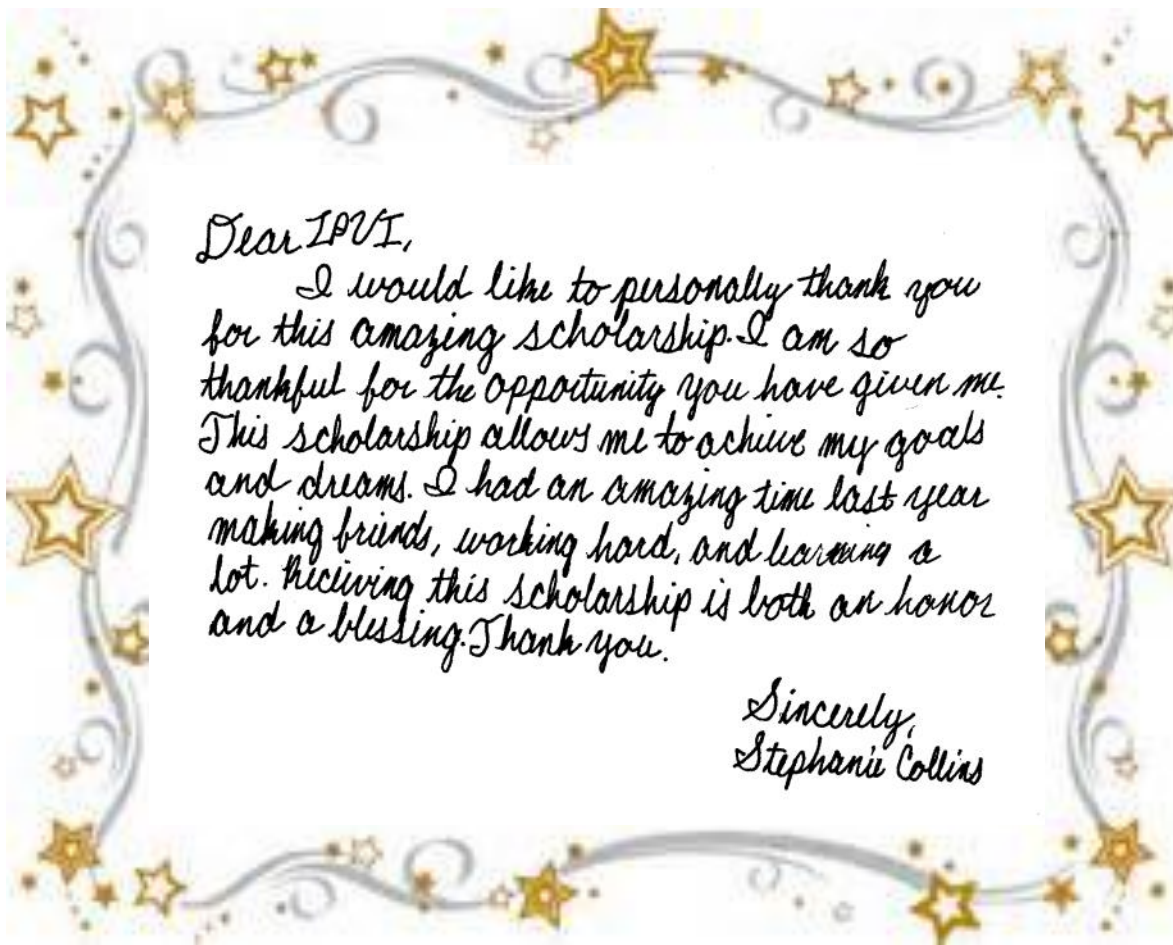 Dear IPVI,
I would like to personally thank you
for this amazing scholarship. I am so
thankful for the opportunity you have given me.
This scholarship allows me to achieve my goals
and dreams. I had an amazing time last year
making friends, working hard, and learning a
lot. Receiving this scholarship is both an honor
and a blessing. Thank you.
Sincerely,
Stephanie Collins